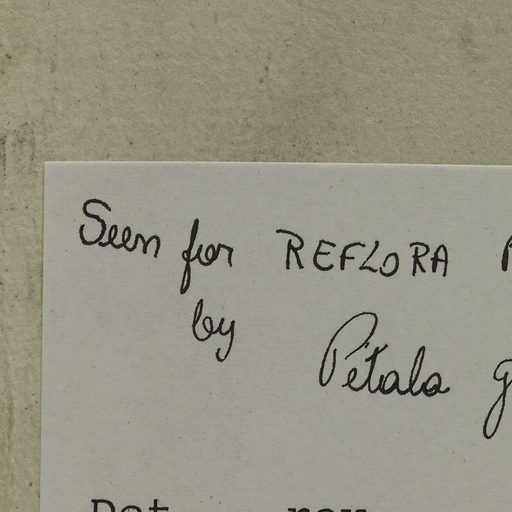 Seen for REFLORA
by
Pétala